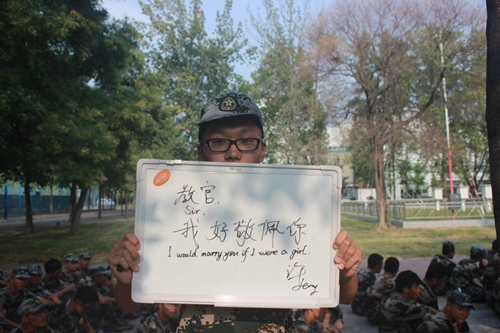 教官
Sir.
我好敬佩你
I would marry you if I were a girl.
许